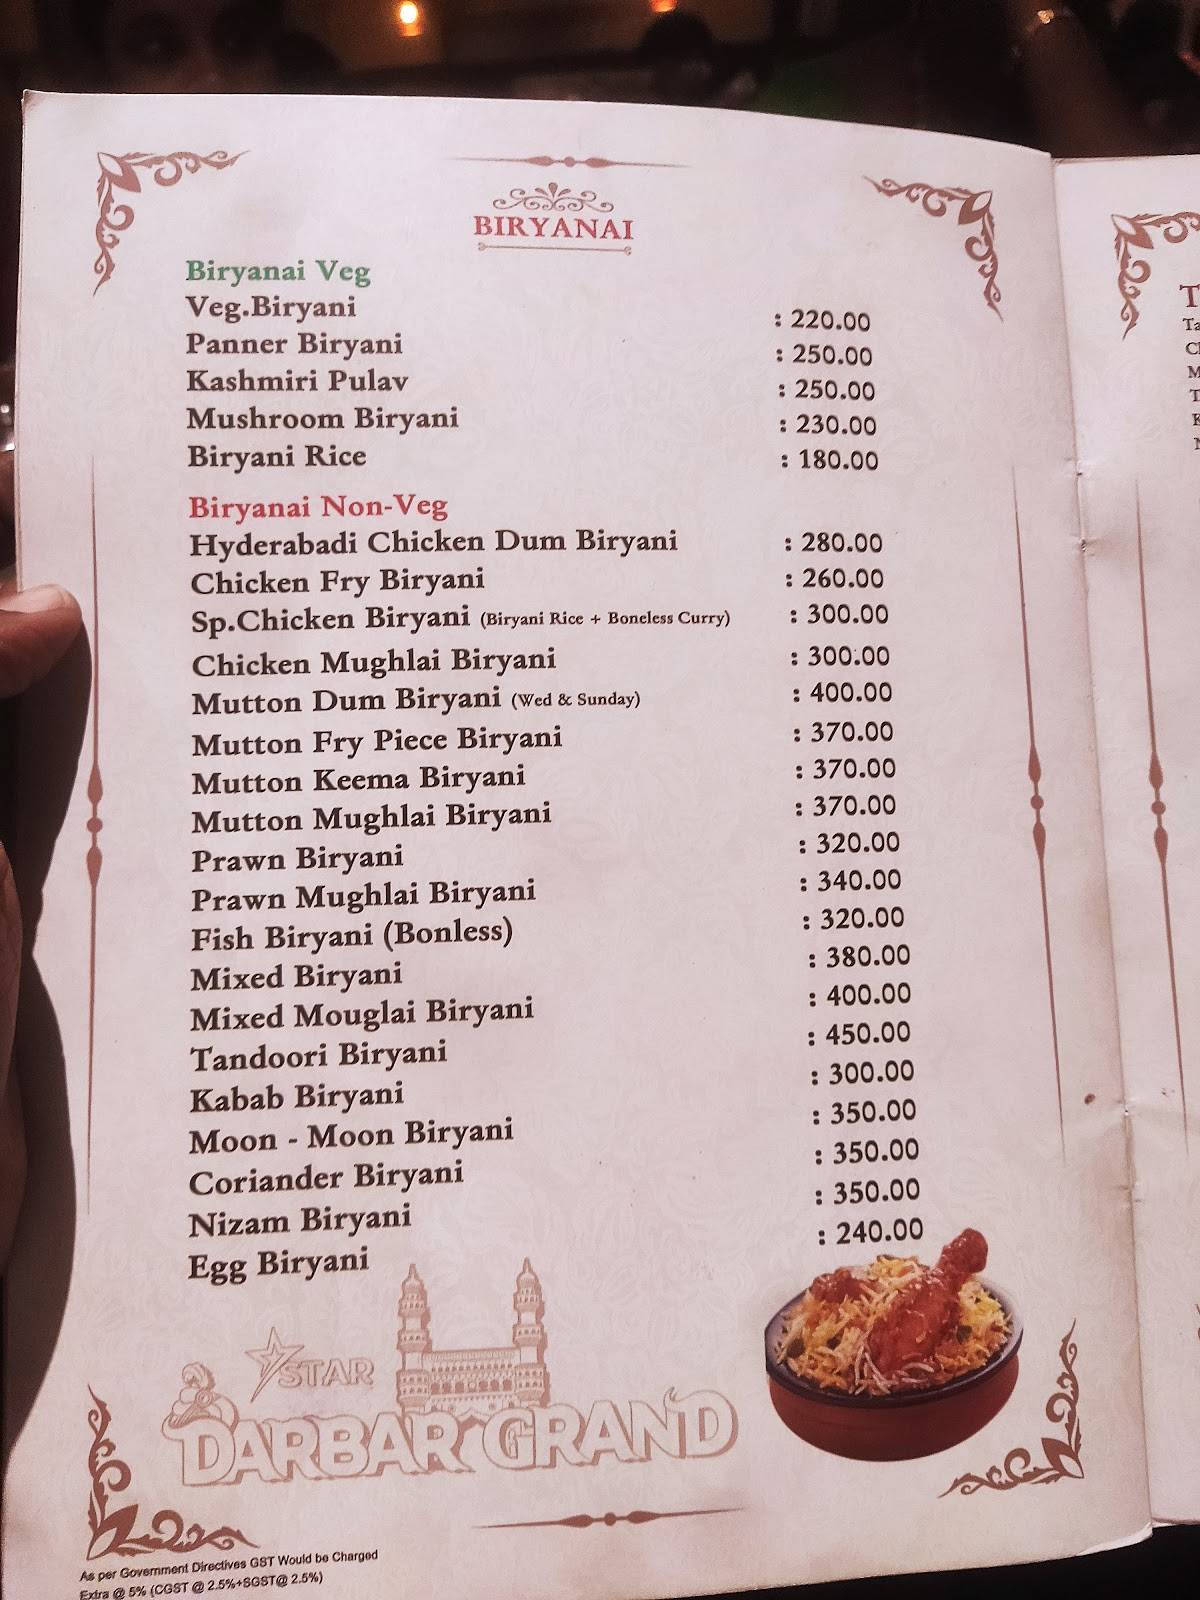 BIRYANAI
Biryanai Veg
Veg.Biryani : 220.00
Panner Biryani : 250.00
Kashmiri Pulav : 250.00
Mushroom Biryani : 230.00
Biryani Rice : 180.00
Biryanai Non-Veg
Hyderabadi Chicken Dum Biryani : 280.00
Chicken Fry Biryani : 260.00
Sp.Chicken Biryani (Biryani Rice + Boneless Curry) : 300.00
Chicken Mughlai Biryani : 300.00
Mutton Dum Biryani (Wed & Sunday) : 400.00
Mutton Fry Piece Biryani : 370.00
Mutton Keema Biryani : 370.00
Mutton Mughlai Biryani : 370.00
Prawn Biryani : 320.00
Prawn Mughlai Biryani : 340.00
Fish Biryani (Bonless) : 320.00
Mixed Biryani : 380.00
Mixed Mouglai Biryani : 400.00
Tandoori Biryani : 450.00
Kabab Biryani : 300.00
Moon - Moon Biryani : 350.00
Coriander Biryani : 350.00
Nizam Biryani : 350.00
Egg Biryani : 240.00
STAR
DARBAR GRAND
As per Government Directives GST Would be Charged
Extra @ 5% (CGST @ 2.5%+SGST@ 2.5%)